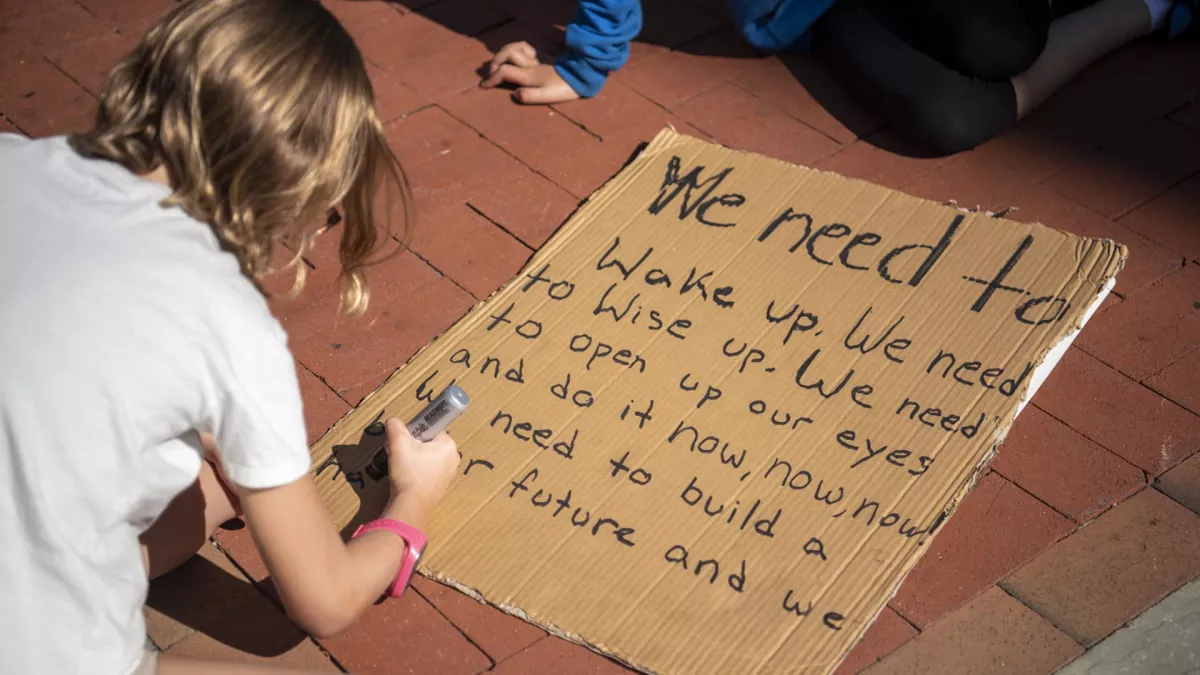 We need to
Wake up. We need
to Wise up. We need
to open up our eyes
and do it now, now, now!
need to build a
future and we